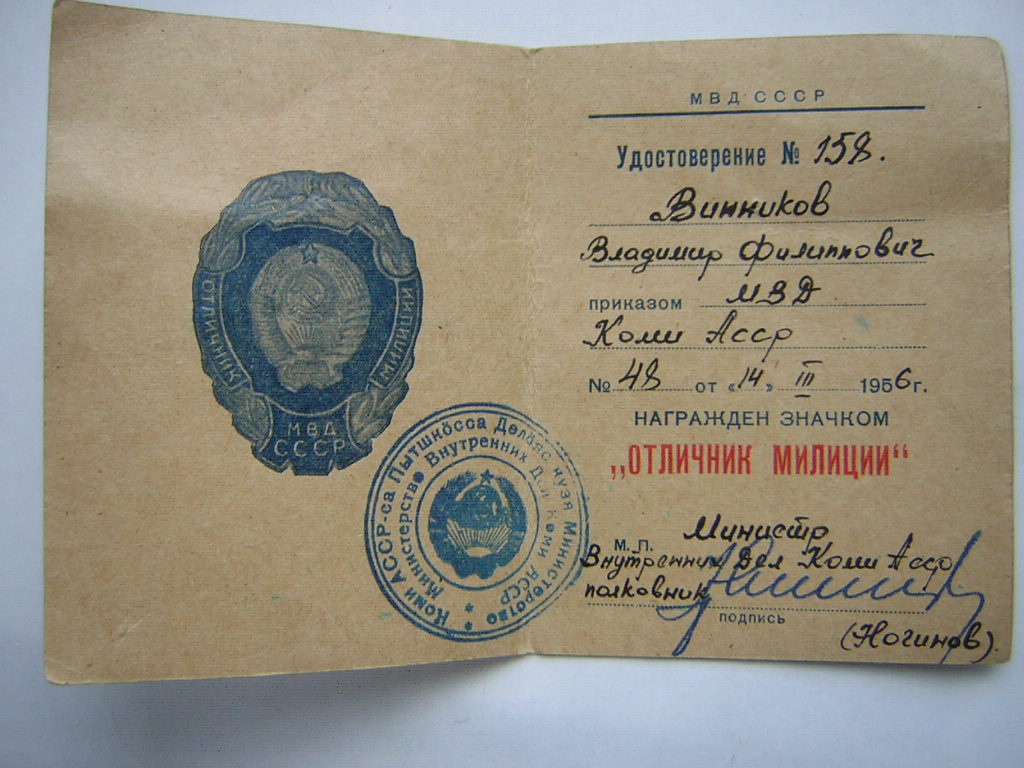 ОТЛИЧНИК
МИЛИЦИИ
МВД
СССР
Коми АССР-са Пытшкӧсса Делӧяс кузя Министерство
Министерство Внутренних Дел Коми АССР
МВД СССР
Удостоверение № 158.
Винников
Владимир Филиппович
приказом МВД
Коми Асср
№ 48 от «14» III 1956 г.
НАГРАЖДЕН ЗНАЧКОМ
„ОТЛИЧНИК МИЛИЦИИ“
Министр
М. П.
Внутренних Дел Коми Асср
полковник
подпись
(Ногинов).